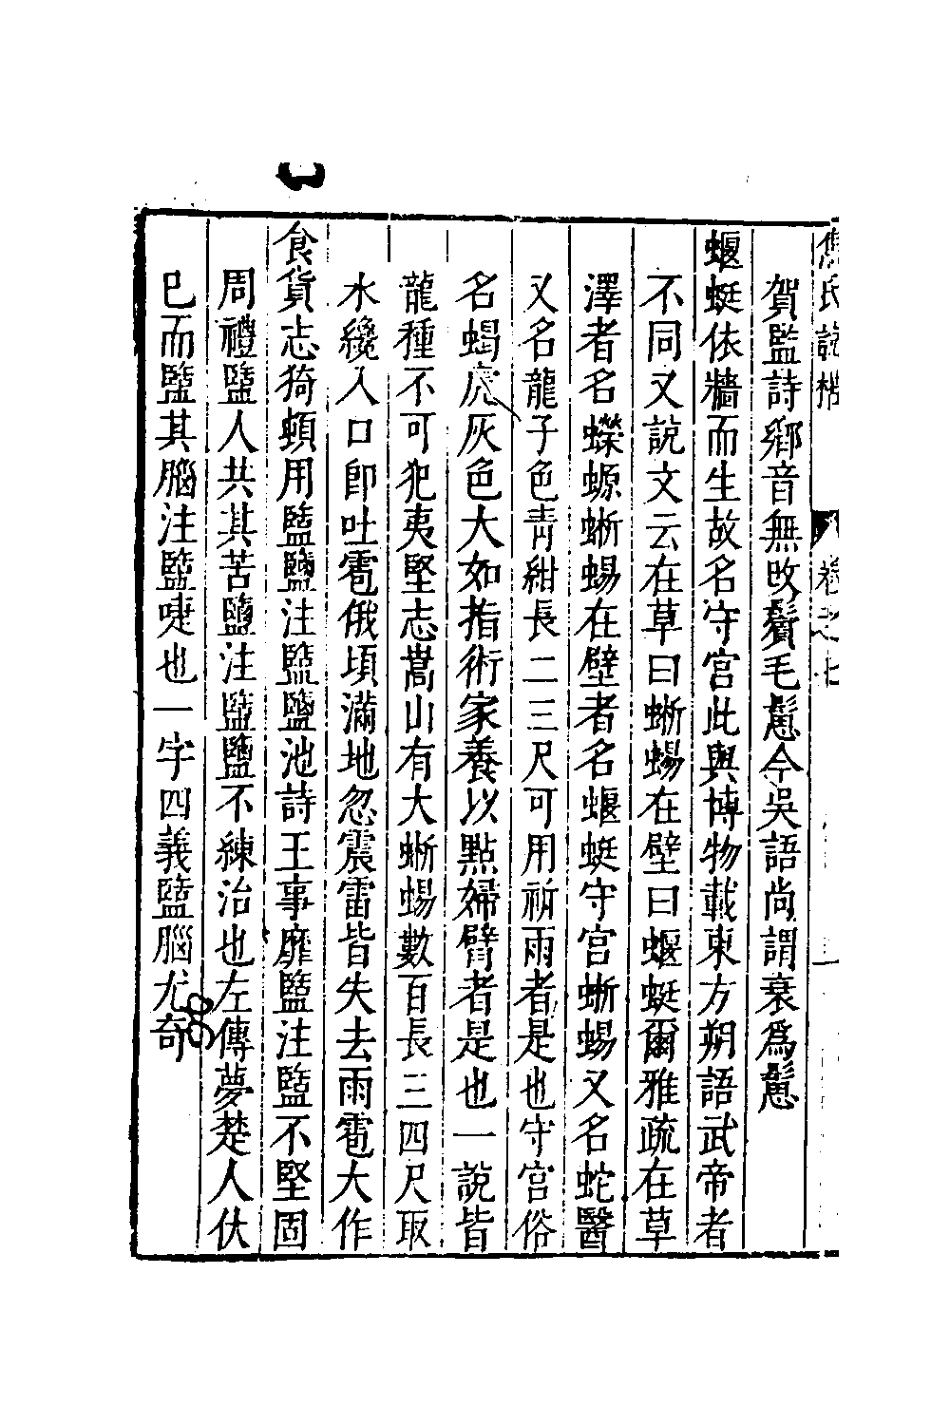 焦氏說楛　卷之七
賀監詩鄉音無改鬢毛䰄今吳語尚謂衰為䰄
蝘蜓依牆而生故名守宮此與博物載東方朔語武帝者
不同又說文云在草曰蜥蜴在壁曰蝘蜓爾雅疏在草
澤者名蠑螈蜥蜴在壁者名蝘蜓守宮蜥蜴又名蛇醫
又名龍子色青紺長二三尺可用祈雨者是也守宮俗
名蝎虎灰色大如指術家養以點婦臂者是也一說皆
龍種不可犯夷堅志嵩山有大蜥蜴數百長三四尺取
水纔入口卽吐雹俄頃滿地忽震雷皆失去雨雹大作
食貨志猗頓用盬鹽注盬鹽池詩王事靡盬注盬不堅固
周禮盬人共其苦鹽注盬鹽不練治也左傳夢楚人伏
已而盬其腦注盬啑也一字四義盬腦尤奇